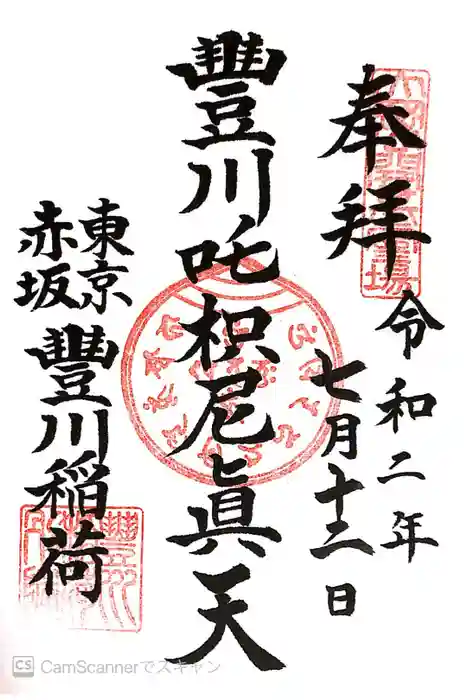 奉拝
令和二年
七月十二日
豐川吒枳尼眞天
東京
赤坂
豐川稲荷
CS CamScannerでスキャン